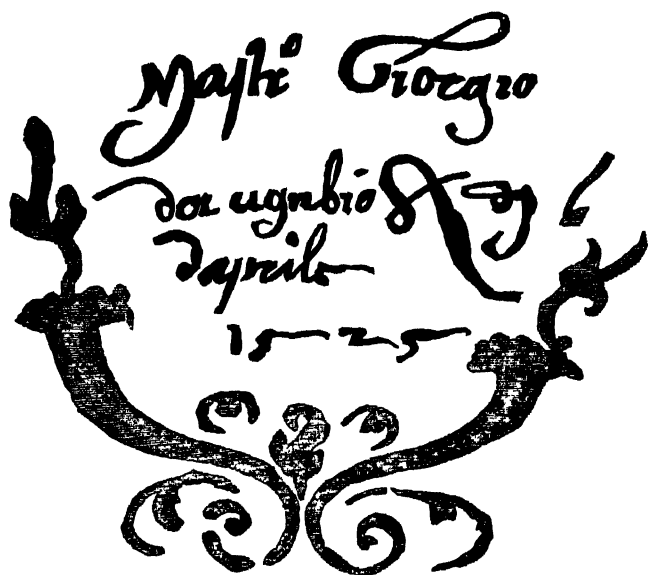 Maſtrº Giorgio
da ugubio A dy 6
daprile
1525